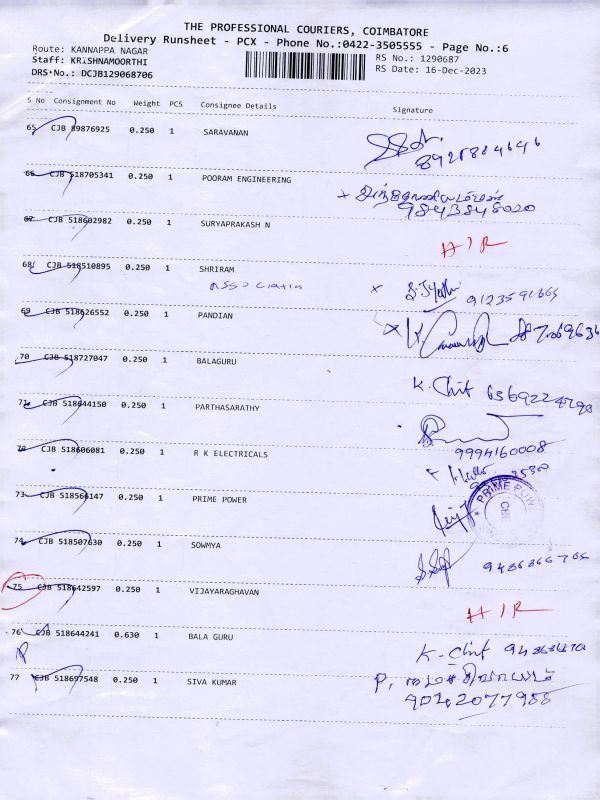 THE PROFESSIONAL COURIERS, COIMBATORE
Delivery Runsheet - PCX - Phone No.:0422-3505555 - Page No.:6
Route: KANNAPPA NAGAR
Staff: KRISHNAMOORTHI
DRS No.: DCJB129068706
RS No.: 1290687
RS Date: 16-Dec-2023
S No Consignment No Weight PCS Consignee Details Signature
65 CJB 89876925 0.250 1 SARAVANAN
66 CJB 518705341 0.250 1 POORAM ENGINEERING
9843848020
67 CJB 518602982 0.250 1 SURYAPRAKASH N
68 CJB 518510895 0.250 1 SHRIRAM
69 CJB 518626552 0.250 1 PANDIAN
70 CJB 518727047 0.250 1 BALAGURU
71 CJB 518644150 0.250 1 PARTHASARATHY
9994160008
72 CJB 518606081 0.250 1 R K ELECTRICALS
73 CJB 518566147 0.250 1 PRIME POWER
PRIME POW
74 CJB 518507630 0.250 1 SOWMYA
75 CJB 518642597 0.250 1 VIJAYARAGHAVAN
76 CJB 518644241 0.630 1 BALA GURU
P
77 CJB 518697548 0.250 1 SIVA KUMAR
9042077988